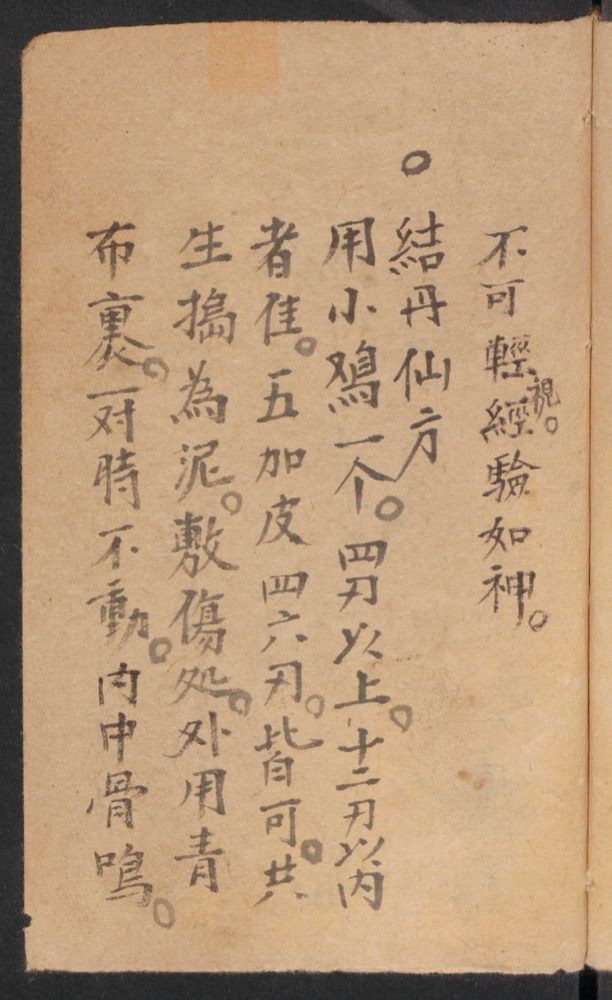 不可輕視。經驗如神。
。結丹仙方
用小鳮一个。四刃以上。十二刃以内
者佳。五加皮四六刃。皆可。共
生搗為泥。敷傷处。外用青
布裹。一对時不動。内中骨鳴。